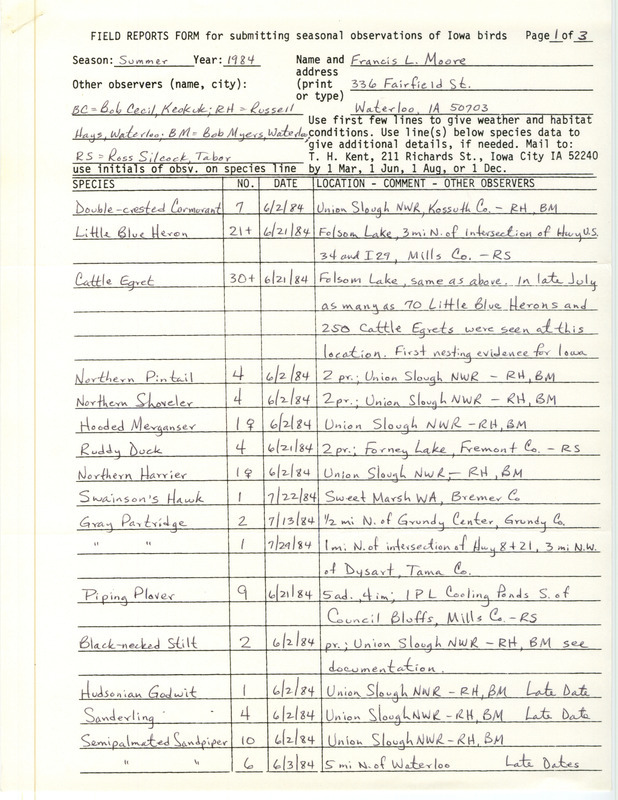 FIELD REPORTS FORM for submitting seasonal observations of Iowa birds Page 1 of 3
Season: Summer Year: 1984 Name and Francis L. Moore
address
Other observers (name, city): (print 336 Fairfield St.
or type)
BC = Bob Cecil, Keokuk; RH = Russell Waterloo, IA 50703
Use first few lines to give weather and habitat
Hays, Waterloo; BM = Bob Myers, Waterloo conditions. Use line(s) below species data to
give additional details, if needed. Mail to:
RS = Ross Silcock, Tabor T. H. Kent, 211 Richards St., Iowa City IA 52240
use initials of obsv. on species line by 1 Mar, 1 Jun, 1 Aug, or 1 Dec.
SPECIES NO. DATE LOCATION - COMMENT - OTHER OBSERVERS
Double-crested Cormorant 7 6/2/84 Union Slough NWR, Kossuth Co. - RH, BM
Little Blue Heron 21+ 6/21/84 Folsom Lake, 3 mi N. of Intersection of Hwy U.S.
34 and I29, Mills Co. - RS
Cattle Egret 30+ 6/21/84 Folsom Lake, same as above. In late July
as many as 70 Little Blue Herons and
250 Cattle Egrets were seen at this
location. First nesting evidence for Iowa
Northern Pintail 4 6/2/84 2 pr.; Union Slough NWR - RH, BM
Northern Shoveler 4 6/2/84 2 pr.; Union Slough NWR - RH, BM
Hooded Merganser 1♀ 6/2/84 Union Slough NWR - RH, BM
Ruddy Duck 4 6/21/84 2 pr.; Forney Lake, Fremont Co. - RS
Northern Harrier 1♀ 6/2/84 Union Slough NWR, - RH, BM
Swainson's Hawk 1 7/22/84 Sweet Marsh WA, Bremer Co
Gray Partridge 2 7/13/84 1/2 mi N. of Grundy Center, Grundy Co.
" " 1 7/29/84 1 mi. N. of intersection of Hwy 8 + 21, 3 mi N.W.
of Dysart, Tama Co.
Piping Plover 9 6/21/84 5 ad., 4 im; IPL Cooling Ponds S. of
Council Bluffs, Mills Co. - RS
Black-necked Stilt 2 6/2/84 pr.; Union Slough NWR - RH, BM see
documentation.
Hudsonian Godwit 1 6/2/84 Union Slough NWR - RH, BM Late Date
Sanderling 4 6/2/84 Union Slough NWR - RH, BM Late Date
Semipalmated Sandpiper 10 6/2/84 Union Slough NWR - RH, BM
" " 6 6/3/84 5 mi N. of Waterloo Late Dates